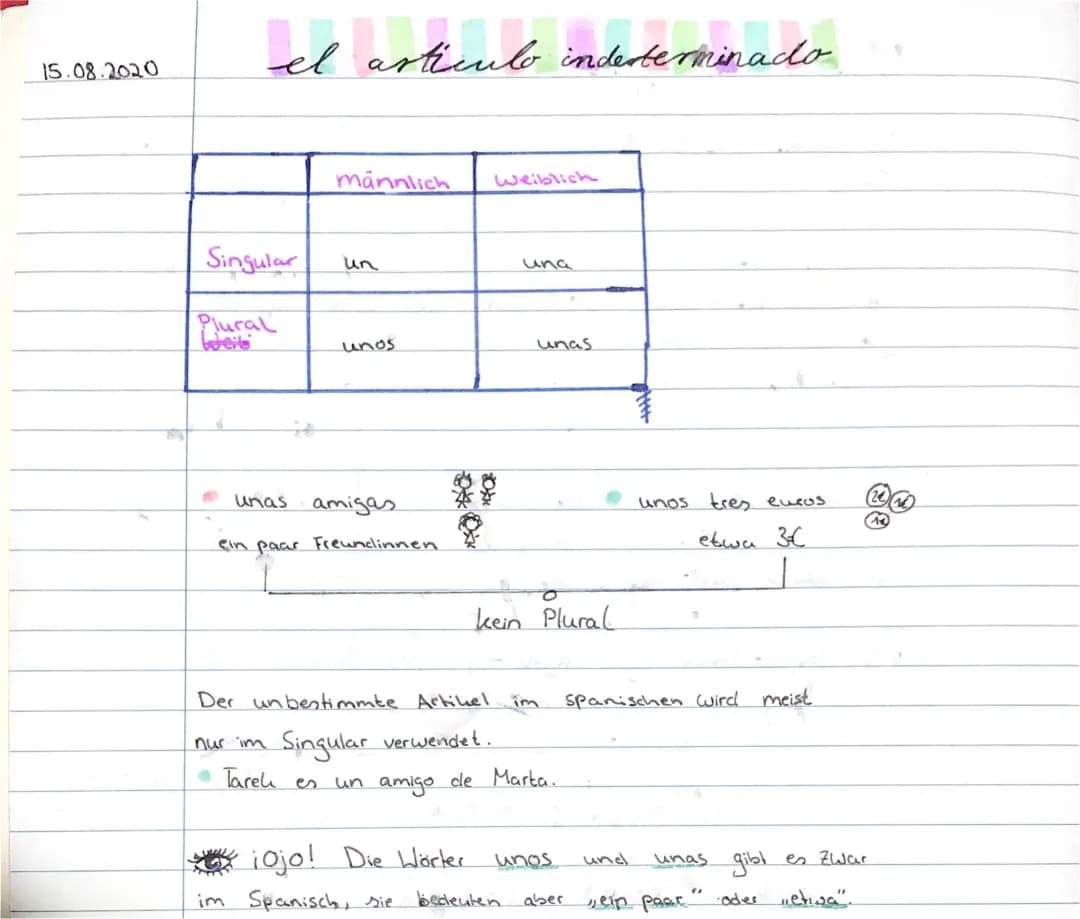 15.08.2020
el articulo inderterminado
männlich weiblich
Singular un una
Plural
unos unas
unas amigas unos tres euros 2€ 1€
1€
ein paar Freundinnen etwa 3€
kein Plural
Der unbestimmte Artikel im spanischen wird meist
nur im Singular verwendet.
Tarek es un amigo de Marta.
¡Ojo! Die Wörter unos und unas gibt es zwar
im Spanisch, sie bedeuten aber „ein paar" oder „etwa".